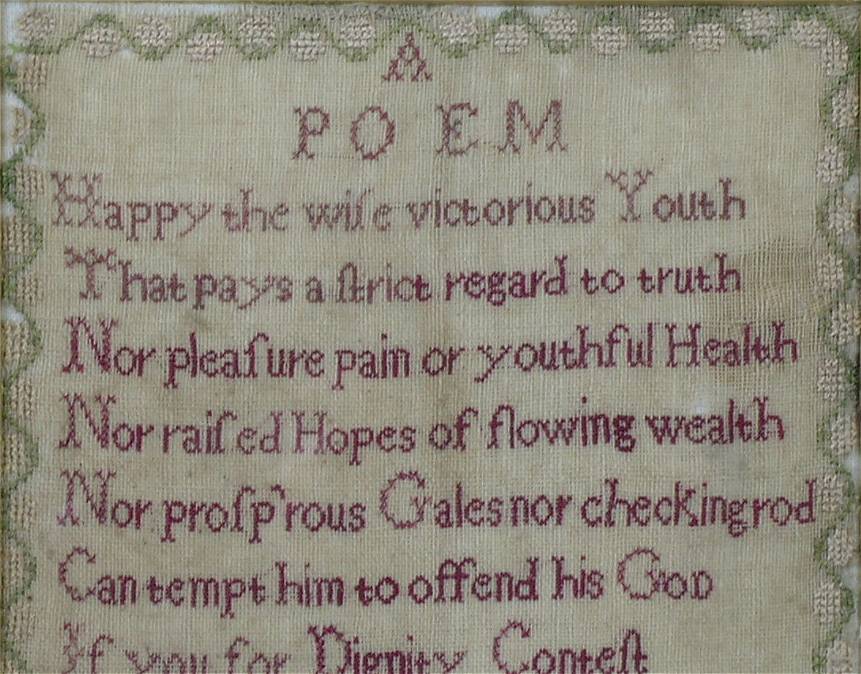 A
POEM
Happy the wiſe victorious Youth
That pays a ſtrict regard to truth
Nor pleaſure pain or youthful Health
Nor raiſed Hopes of flowing wealth
Nor proſp'rous Gales nor checking rod
Can tempt him to offend his GoD
If you for Dignity Conteſt